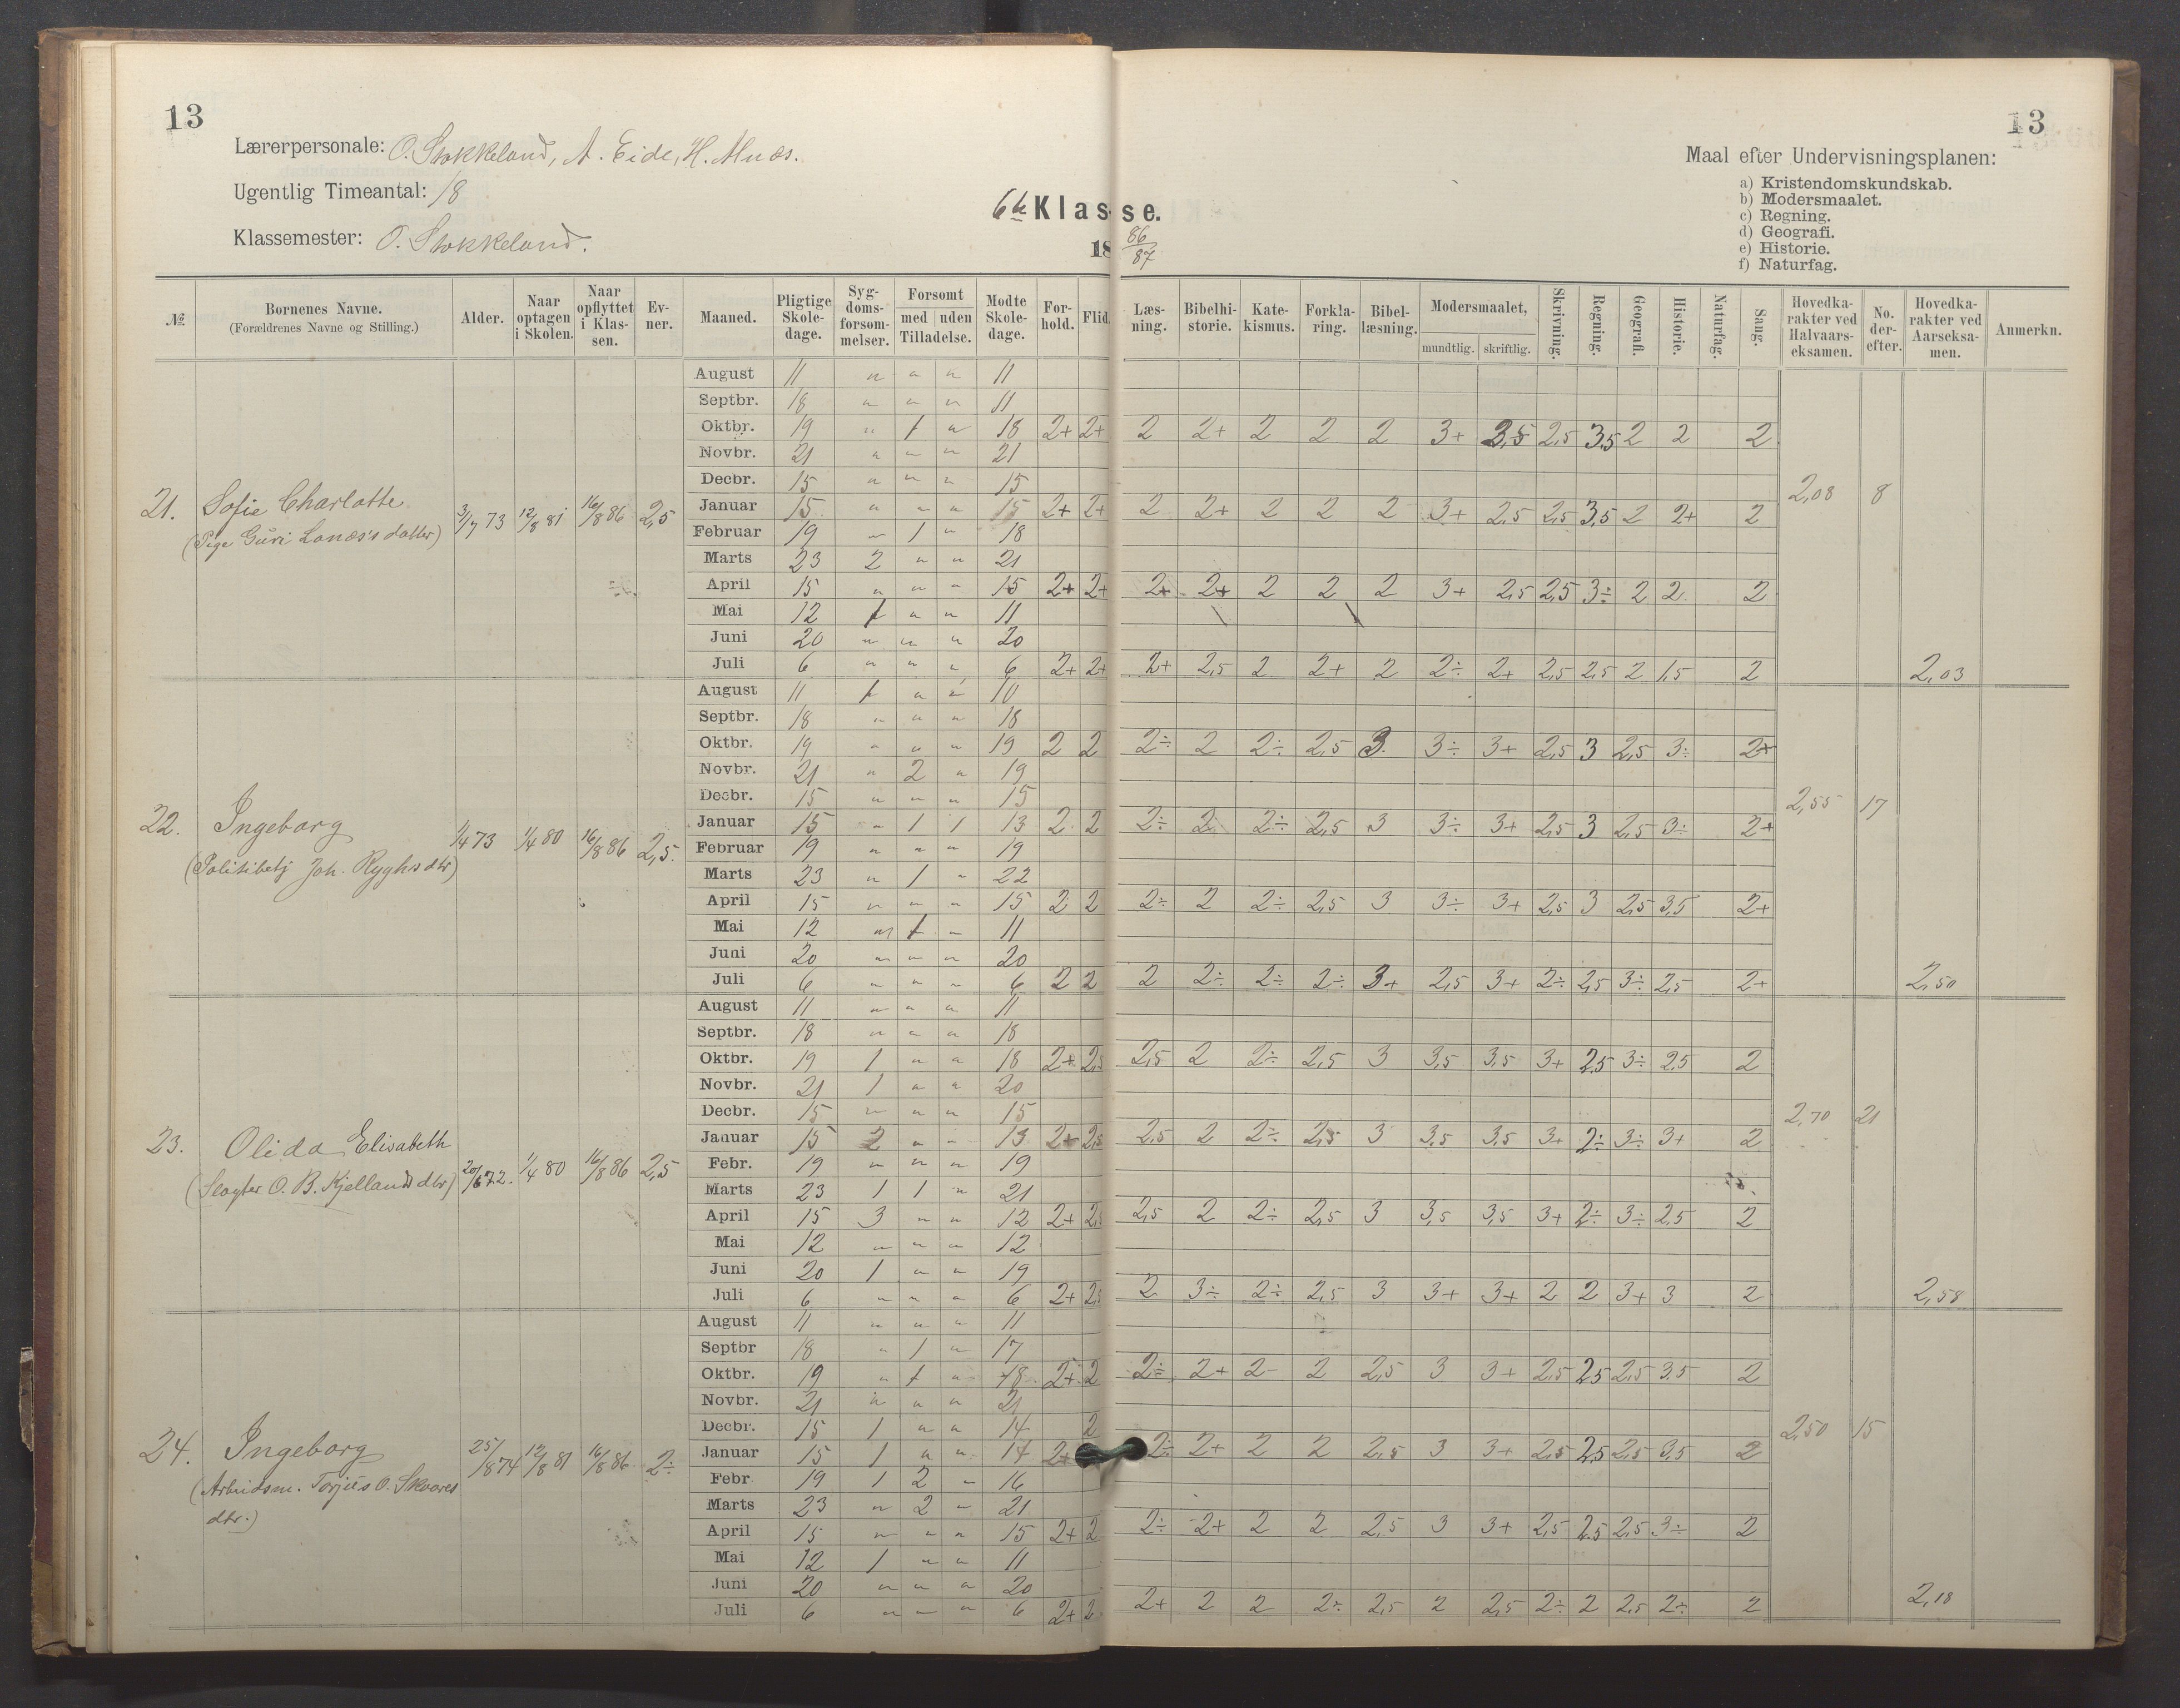 13
13
Lærerpersonale: O. Stokkeland, A. Eide, H. Alnæs.
Ugentlig Timeantal: 18
Klassemester: O. Stokkeland.
6te Klasse.
18 86/87
Maal efter Undervisningsplanen:
a) Kristendomskundskab.
b) Modersmaalet.
c) Regning.
d) Geografi.
e) Historie.
f) Naturfag.
№ Børnenes Navne. (Forældrenes Navne og Stilling.) Alder. Naar optagen i Skolen. Naar opflyttet i Klassen. Evner. Maaned. Pligtige Skoledage. Sygdomsforsømmelser. Forsømt med uden Tilladelse. Mødte Skoledage. Forhold. Flid. Læsning. Bibelhistorie. Katekismus. Forklaring. Bibellæsning. Modersmaalet, mundtlig. skriftlig. Skrivning. Regning. Geografi. Historie. Naturfag. Sang. Hovedkarakter ved Halvaarseksamen. No. derefter. Hovedkarakter ved Aarseksamen. Anmerkn.
21. Sofie Charlotte 3/7 73 12/8 81 16/8 86 2,5
(Pige Guri Lanæs's datter)
August 11 " " " 11
Septbr. 18 " " " 11
Oktbr. 19 " 1 " 18 2+ 2+ 2 2+ 2 2 2 3+ 3,5 2,5 3,5 2 2 2
Novbr. 21 " " " 21
Decbr. 15 " " " 15
Januar 15 " " " 15 2+ 2+ 2 2+ 2 2 2 3+ 2,5 2,5 3,5 2 2+ 2 2,08 8
Februar 19 " 1 " 18
Marts 23 2 " " 21
April 15 " " " 15 2+ 2+ 2+ 2+ 2 2 2 3+ 2,5 2,5 3÷ 2 2 2
Mai 12 1 " " 11
Juni 20 " " " 20
Juli 6 " " " 6 2+ 2+ 2+ 2,5 2 2+ 2 2÷ 2+ 2,5 2,5 2 1,5 2 2,03
22. Ingeborg 1/4 73 1/4 80 16/8 86 2,5.
(Politibetj Joh. Ryghs dtr)
August 11 1 " " 10
Septbr. 18 " " " 18
Oktbr. 19 " " " 19 2 2 2÷ 2 2÷ 2,5 3 3÷ 3+ 2,5 3 2,5 3÷ 2+
Novbr. 21 " 2 " 19
Decbr. 15 " " " 15
Januar 15 " 1 1 13 2 2 2÷ 2 2÷ 2,5 3 3÷ 3+ 2,5 3 2,5 3÷ 2+ 2,55 17
Februar 19 " " " 19
Marts 23 " 1 " 22
April 15 " " " 15 2 2 2÷ 2 2÷ 2,5 3 3÷ 3+ 2,5 3 2,5 3,5 2+
Mai 12 " 1 " 11
Juni 20 " " " 20
Juli 6 " " " 6 2 2 2 2÷ 2÷ 2÷ 3+ 2,5 3+ 2÷ 2,5 3÷ 2,5 2+ 2,50
23. Olida Elisabeth 20/6 72. 1/4 80 16/8 86 2,5
(Sløyter O. B. Kjellands dtr)
August 11 " " " 11
Septbr. 18 " " " 18
Oktbr. 19 1 " " 18 2+ 2,5 2,5 2 2÷ 2,5 3 3,5 3,5 3+ 2,5 3÷ 2,5 2
Novbr. 21 1 " " 20
Decbr. 15 " " " 15
Januar 15 2 " " 13 2+ 2,5 2,5 2 2÷ 2,5 3 3,5 3,5 3+ 2÷ 3÷ 3+ 2 2,70 21
Febr. 19 " " " 19
Marts 23 1 1 " 21
April 15 3 " " 12 2+ 2,5 2,5 2 2÷ 2,5 3 3,5 3,5 3+ 2÷ 3÷ 2,5 2
Mai 12 " " " 12
Juni 20 1 " " 19
Juli 6 " " " 6 2+ 2,5 2 3÷ 2÷ 2,5 3 3+ 3+ 2 2 3+ 3 2 2,58
24. Ingeborg 25/8 74 12/8 81 16/8 86 2÷
(Arbeidsm. Torjus O. Skværes
dtr.)
August 11 " " " 11
Septbr 18 " 1 " 17
Oktbr. 19 " 1 " 18 2+ 2 2÷ 2+ 2- 2 2,5 3 3+ 2,5 2,5 2,5 3,5 2
Novbr. 21 " " " 21
Decbr. 15 1 " " 14 2
Januar 15 1 " " 14 2+ 2÷ 2+ 2 2 2,5 3 3+ 2,5 2,5 2,5 3,5 2 2,50 15
Febr 19 1 2 " 16
Marts 23 " 2 " 21
April 15 " " " 15 2+ 2 2÷ 2+ 2 2 2,5 3 3+ 2,5 2,5 2,5 3÷ 2
Mai 12 1 " " 11
Juni 20 " " " 20
Juli 6 " " " 6 2+ 2 2+ 2 2 2÷ 2,5 2 2,5 2÷ 2 2,5 2÷ 2 2,18